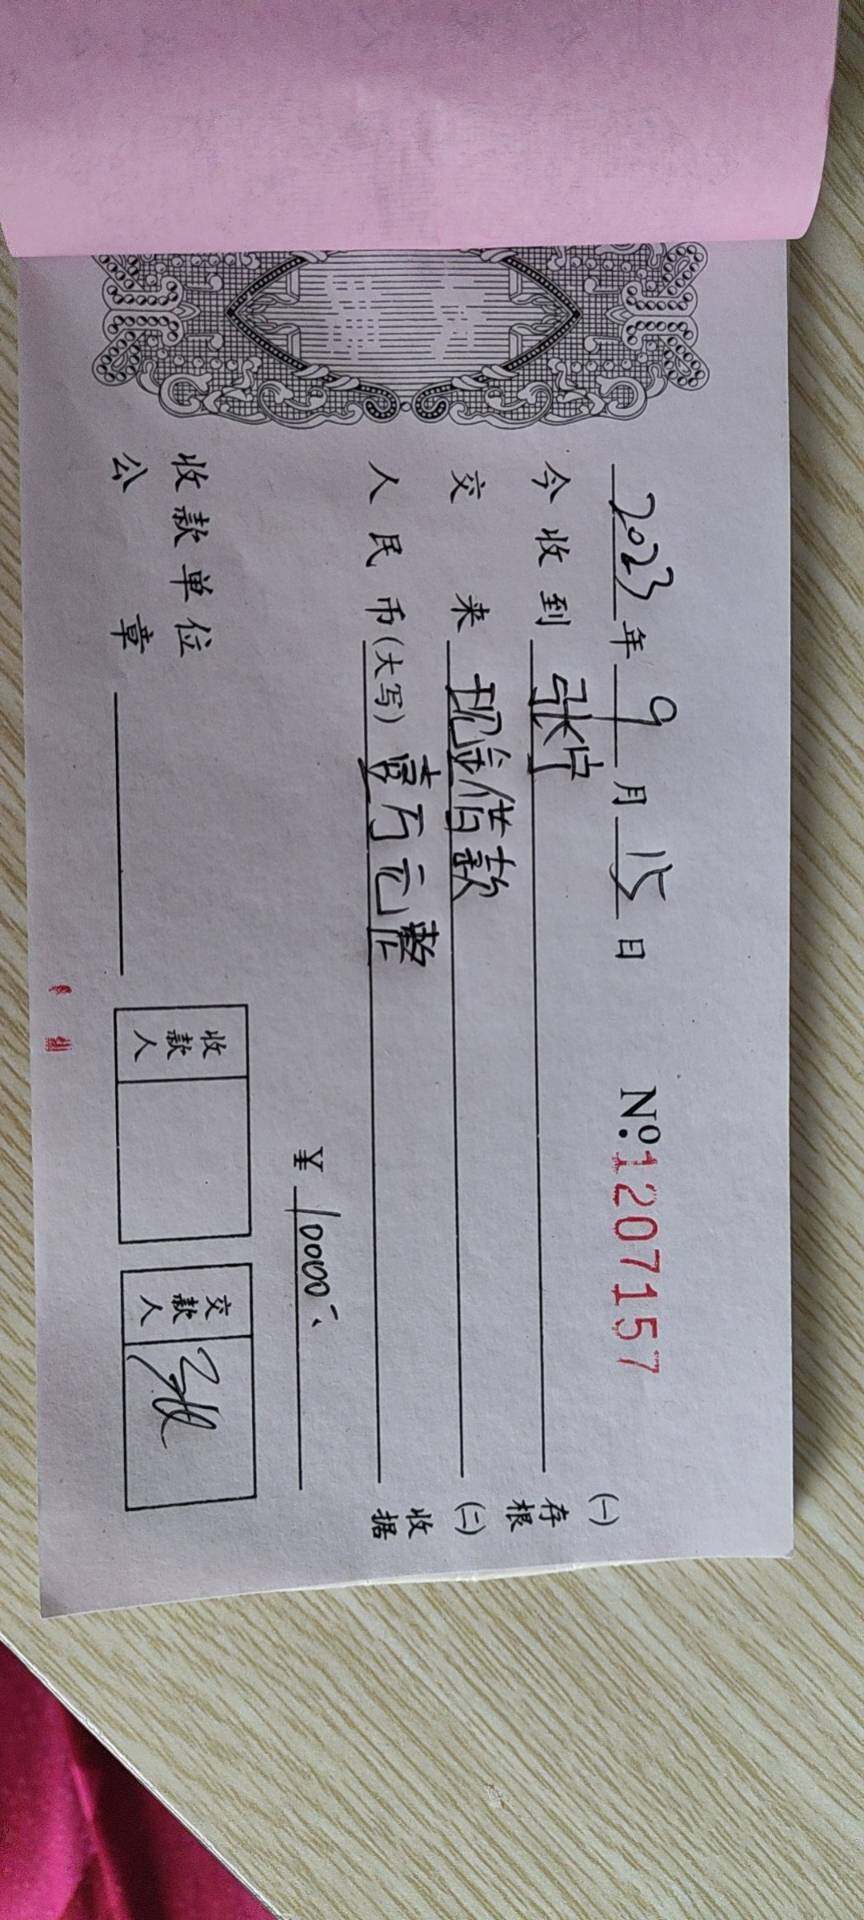 2023年9月15日 №1207157
今收到 张宁
交来 现金借款
人民币(大写) 壹万元整
¥ 10000
收款单位
公章
收款人
交款人 张
(一)存根 (二)收据